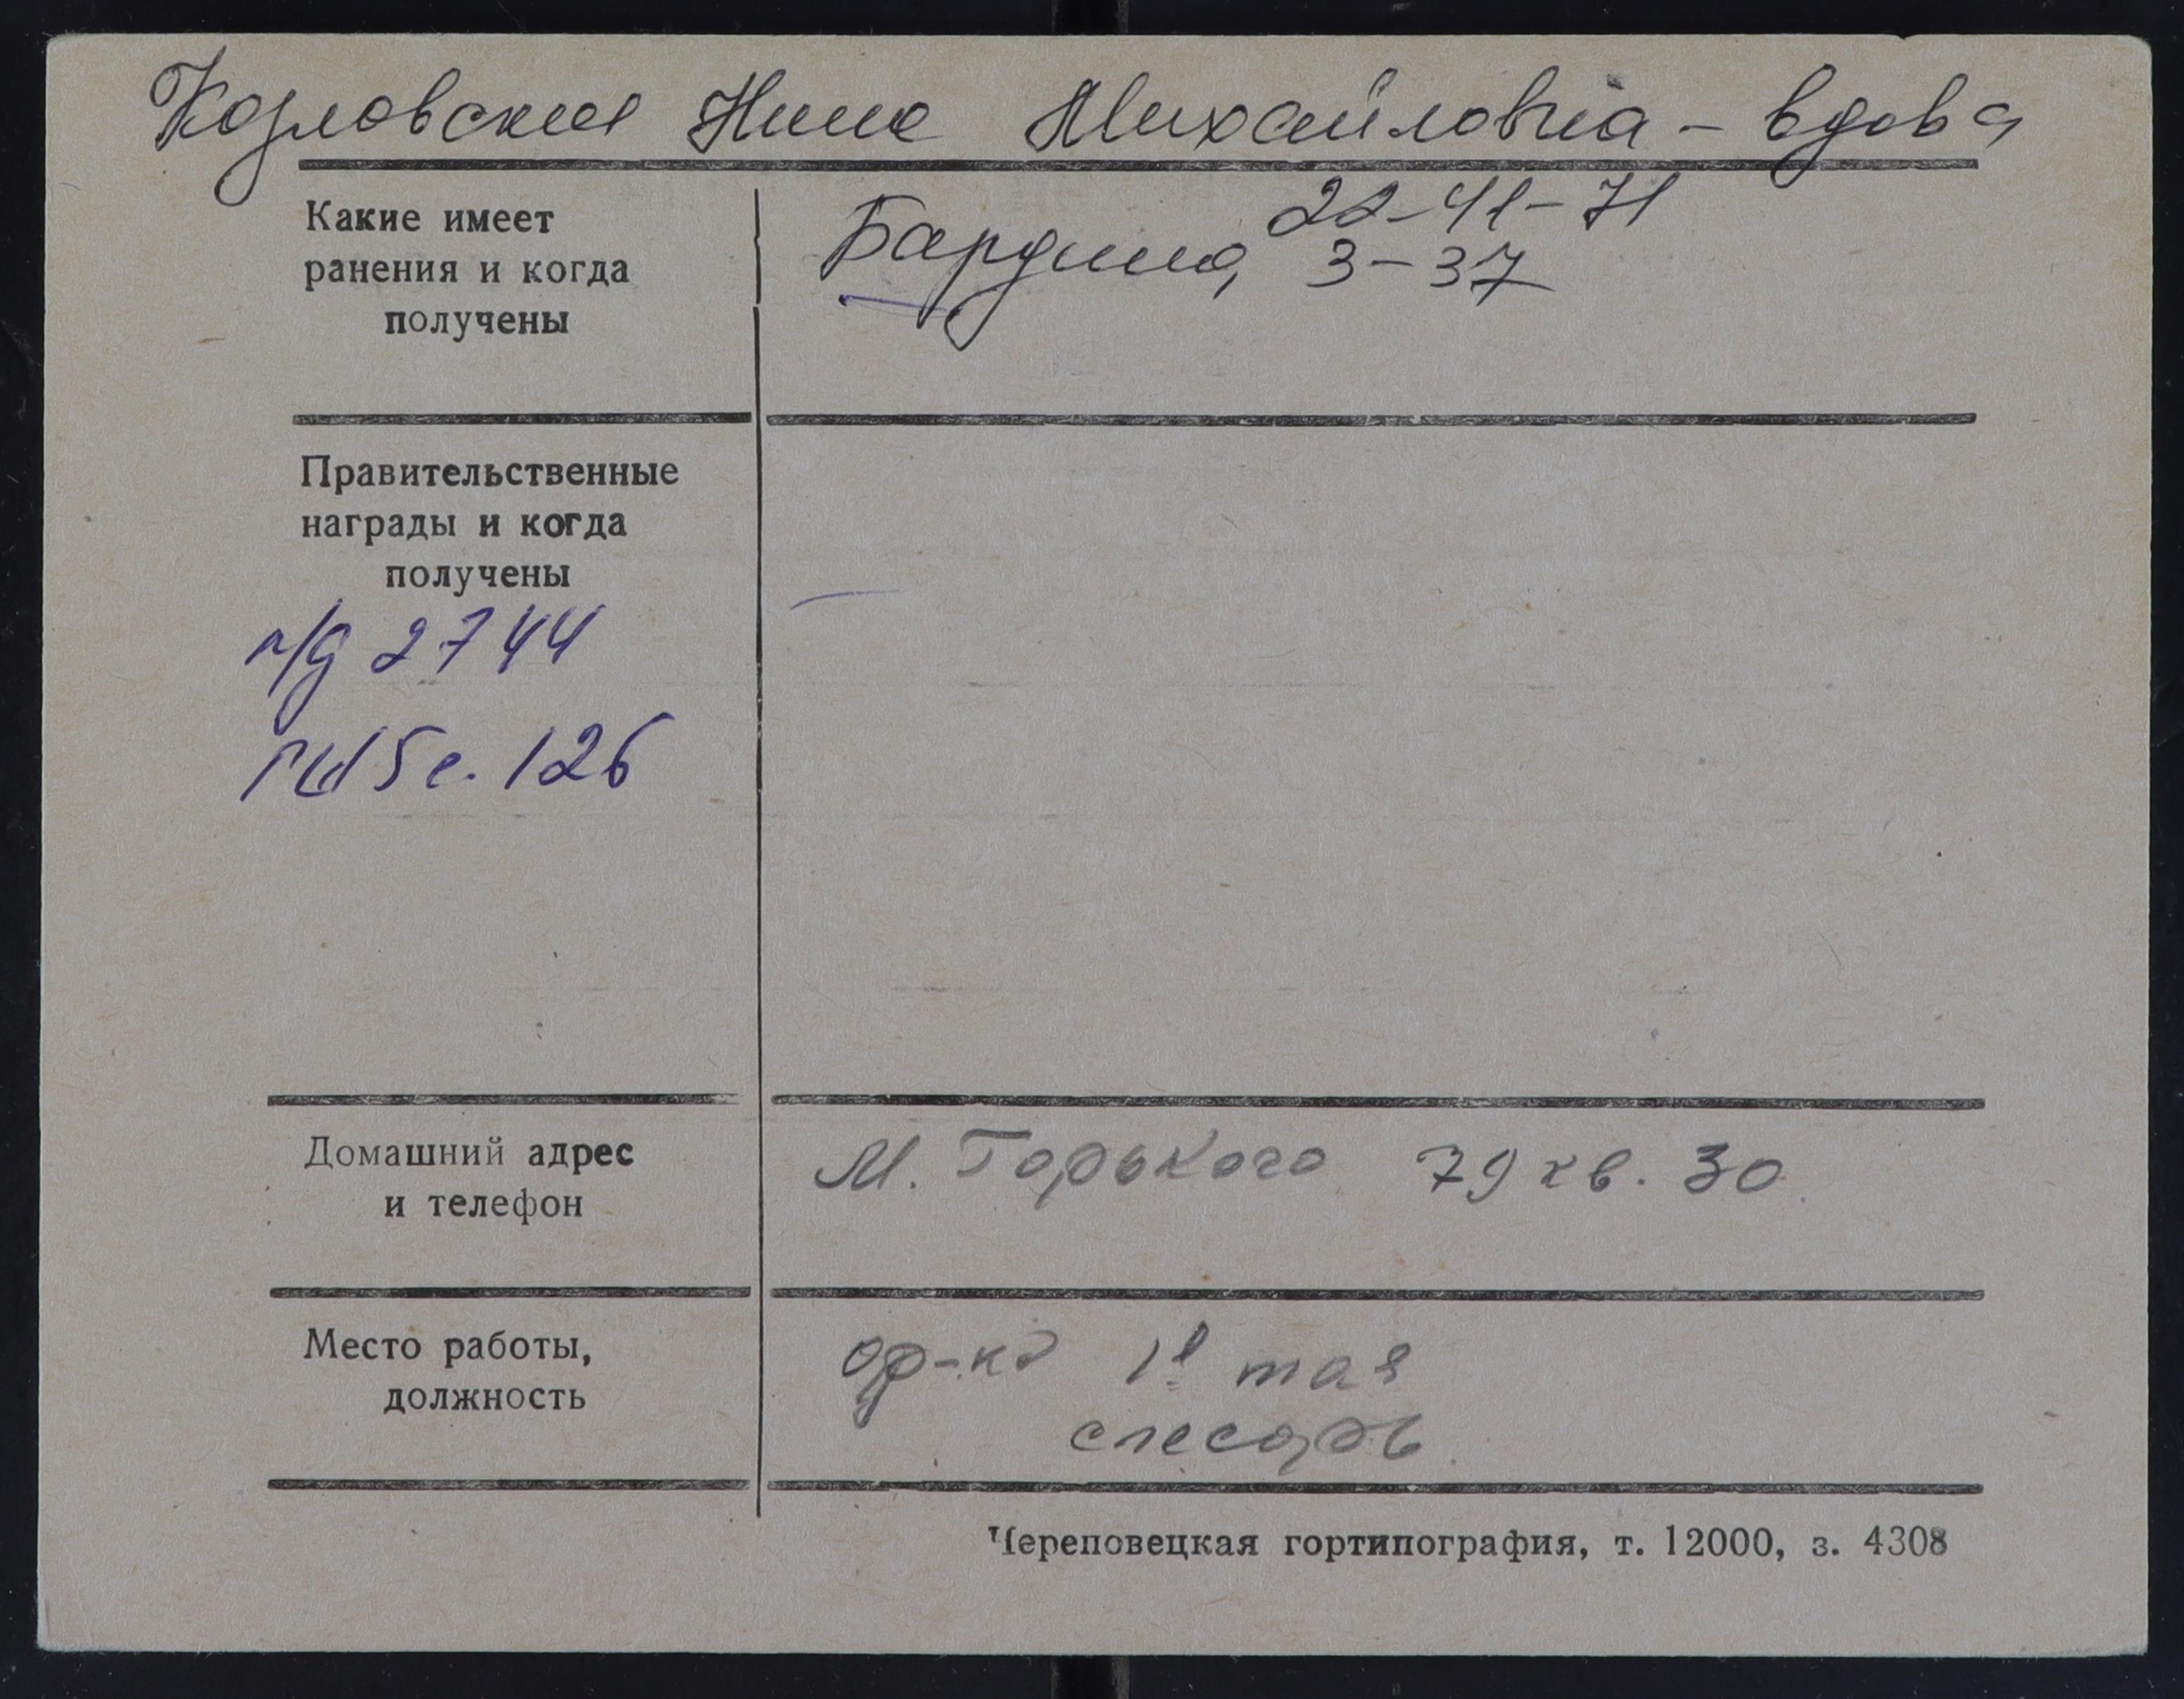 Козловская Нина Михайловна - вдова
22-41-71
Какие имеет
ранения и когда
получены
Бардина, 3-37
Правительственные
награды и когда
получены
п/д 2744
5 с. 126
Домашний адрес
и телефон
М. Горького 79 кв. 30
Место работы,
должность
ф-ка 1е мая
слесарь
Череповецкая гортипография, т. 12000, з. 4308